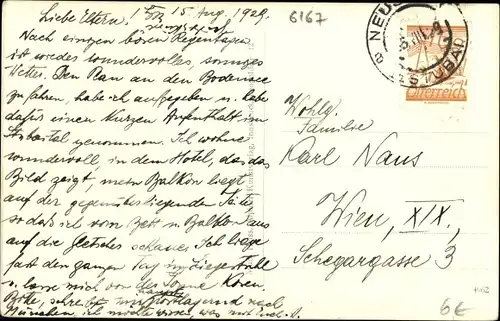 Liebe Eltern! 15. Aug. 1929.
6167
Nach einigen bösen Regentagen
ist wieder wundervolles, sonniges
Wetter. Den Plan an den Bodensee
zu fahren, habe ich aufgegeben u. habe
dafür einen kurzen Aufenthalt im
Stubaital genommen. Ich wohne
wundervoll in dem Hotel, das das
Bild zeigt, mein Balkon liegt
auf der gegenüberliegenden Seite
so daß ich vom Bett u. Balkon aus
auf die Gletscher schaue. Ich liege
fast den ganzen Tag im Liegestuhl
u. lasse mich von der Sonne
Bitte, schreibt mir nach
München, ich möchte wissen, was mit
NEUST
STUBAI
Österreich
Wohlg.
Familie
Karl Naus
Wien, XIX.
Schegargasse 3
6€